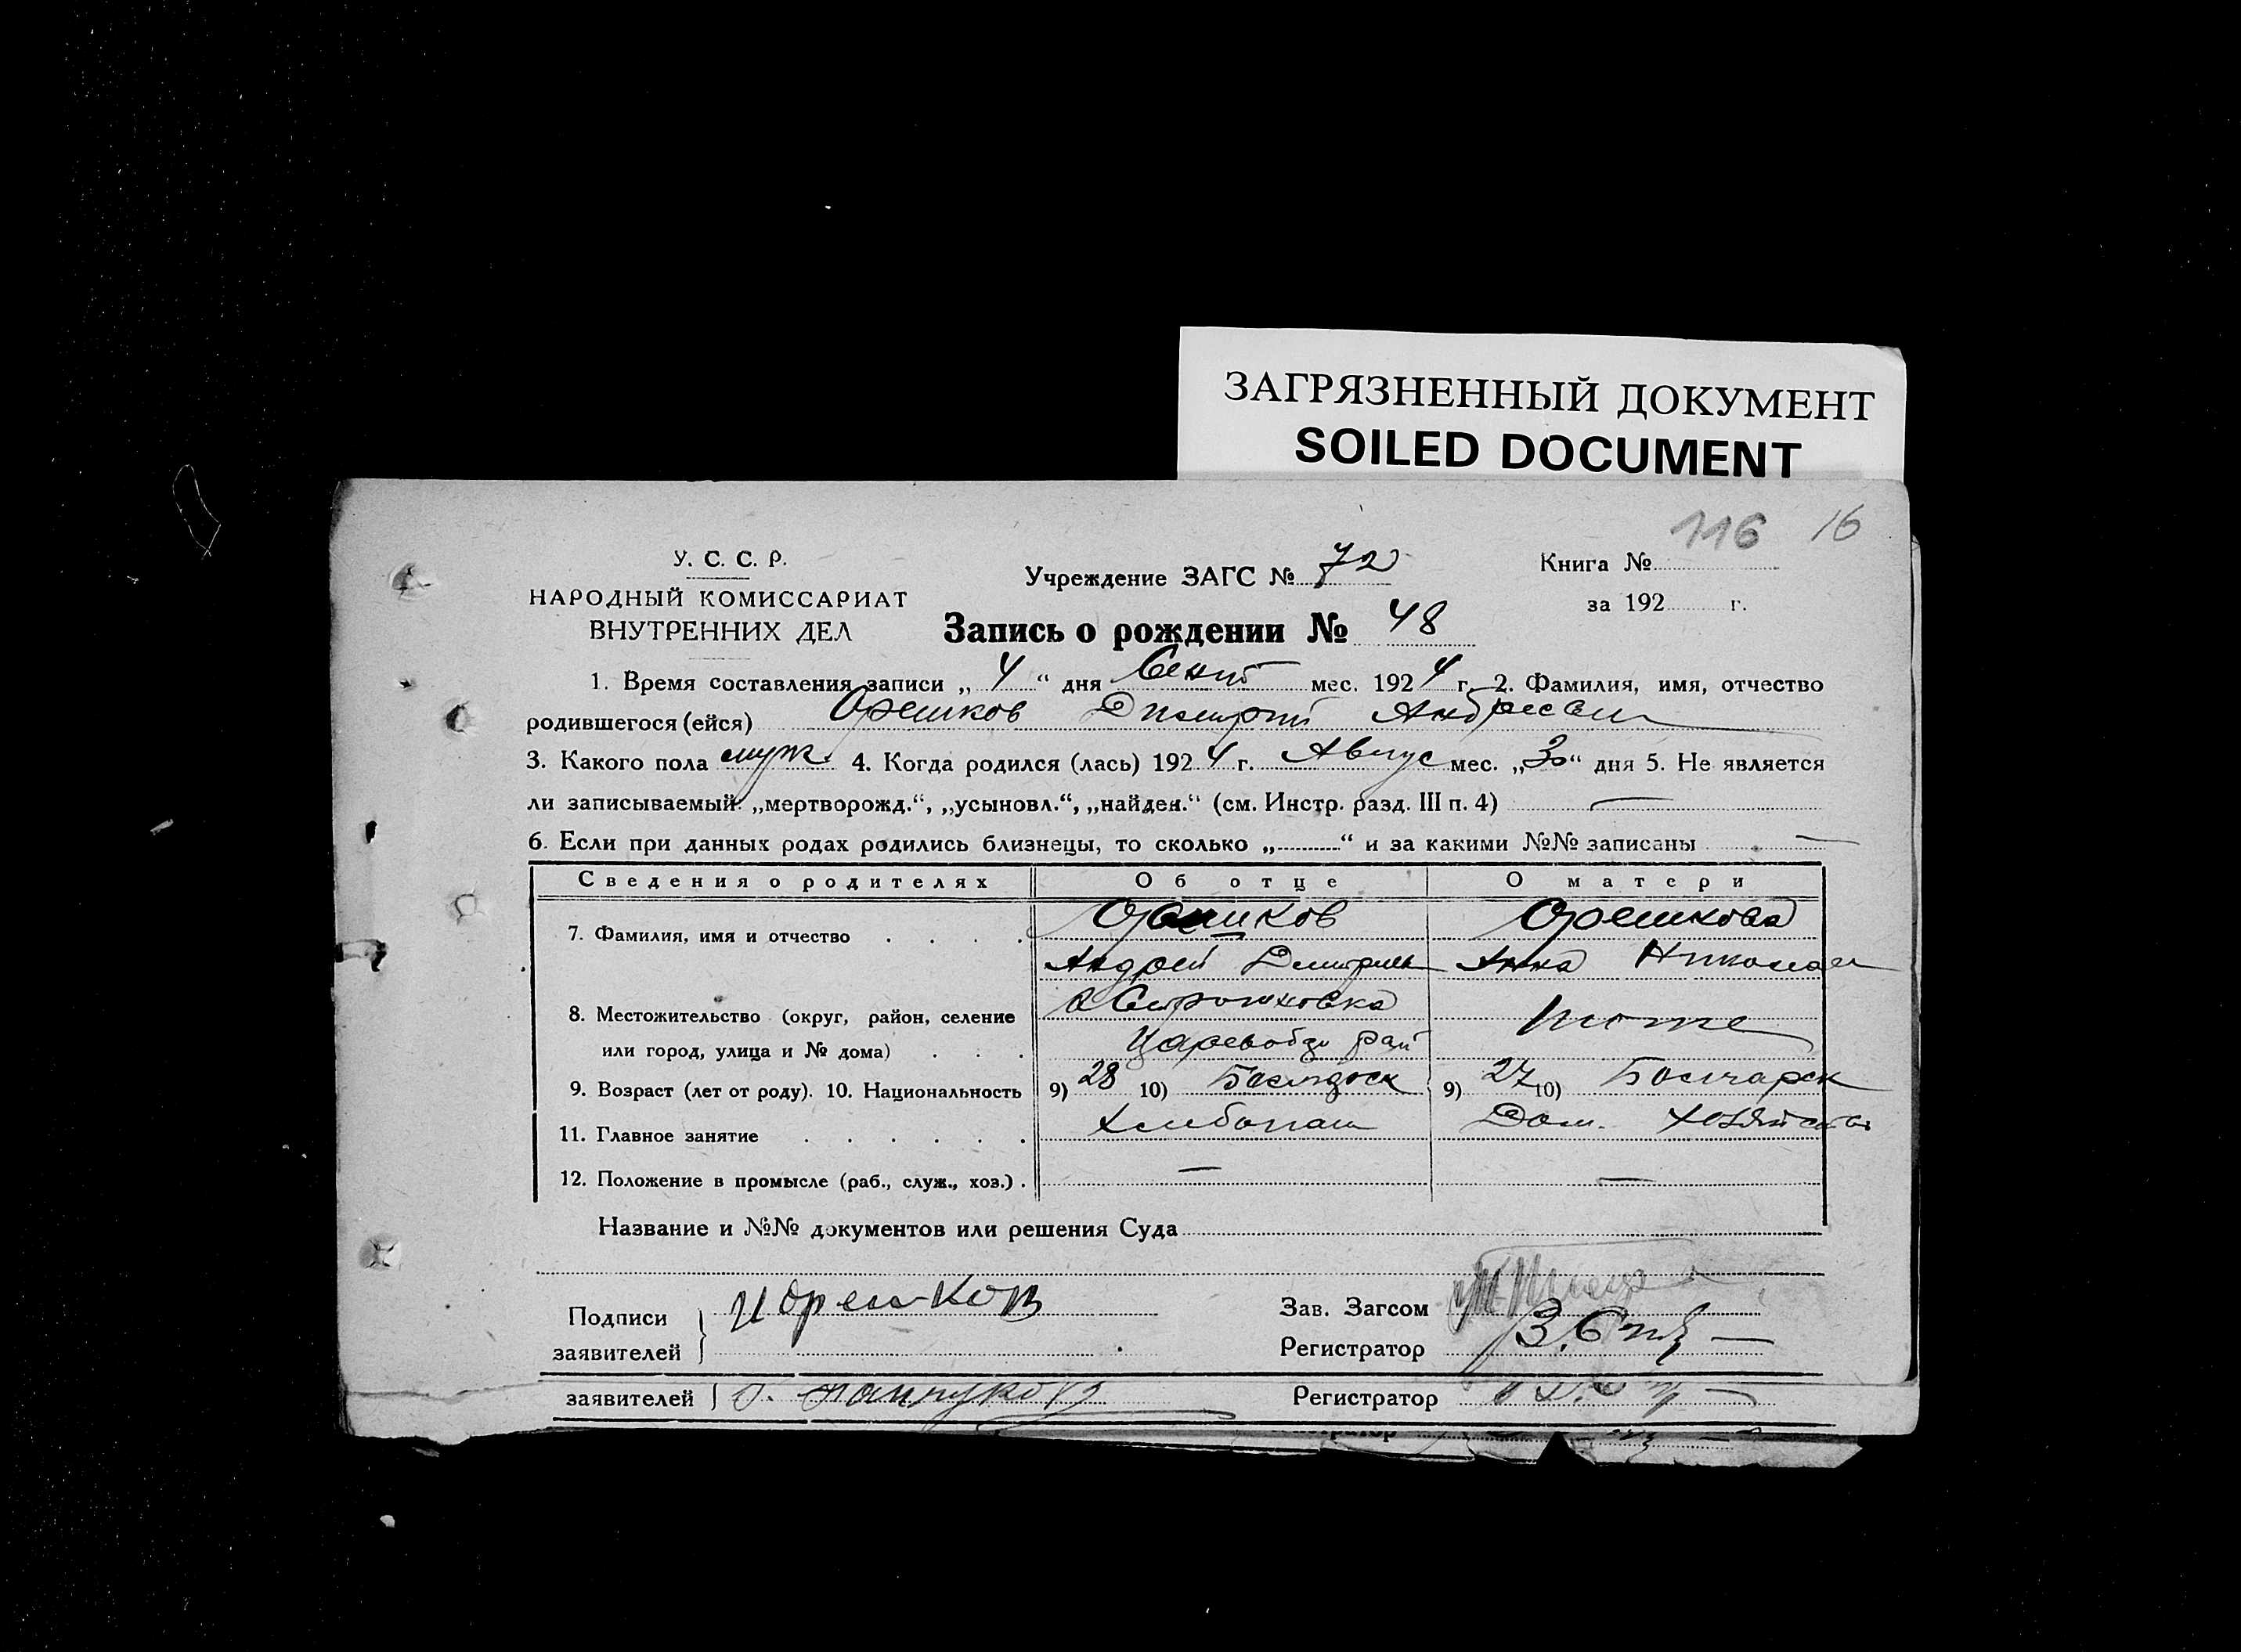 ЗАГРЯЗНЕННЫЙ ДОКУМЕНТ
SOILED DOCUMENT
116 16
У. С. С. Р.
НАРОДНЫЙ КОМИССАРИАТ
ВНУТРЕННИХ ДЕЛ
Учреждение ЗАГС № 72
Книга №
за 192 г.
Запись о рождении № 48
1. Время составления записи „ 4 “ дня Сент мес. 192 4 г. 2. Фамилия, имя, отчество
родившегося (ейся) Орешков Дмитрий Андреевич
3. Какого пола муж. 4. Когда родился (лась) 192 4 г. Август мес. „30“ дня 5. Не является
ли записываемый: „мертворожд.“, „усыновл.“, „найден.“ (см. Инстр. разд. III п. 4) —
6. Если при данных родах родились близнецы, то сколько „ “ и за какими №№ записаны —
Сведения о родителях Об отце О матери
7. Фамилия, имя и отчество Орешков Орешкова
Андрей Дмитриев Анна Николаев
8. Местожительство (округ, район, селение
или город, улица и № дома) рай тоже
9. Возраст (лет от роду). 10. Национальность 9) 28 10) 9) 27 10) Болгарск
11. Главное занятие Хлебопаш Дом. хозяйство
12. Положение в промысле (раб., служ., хоз.) — —
Название и №№ документов или решения Суда
Подписи
заявителей И Орешков
Зав. Загсом
Регистратор
заявителей
Регистратор